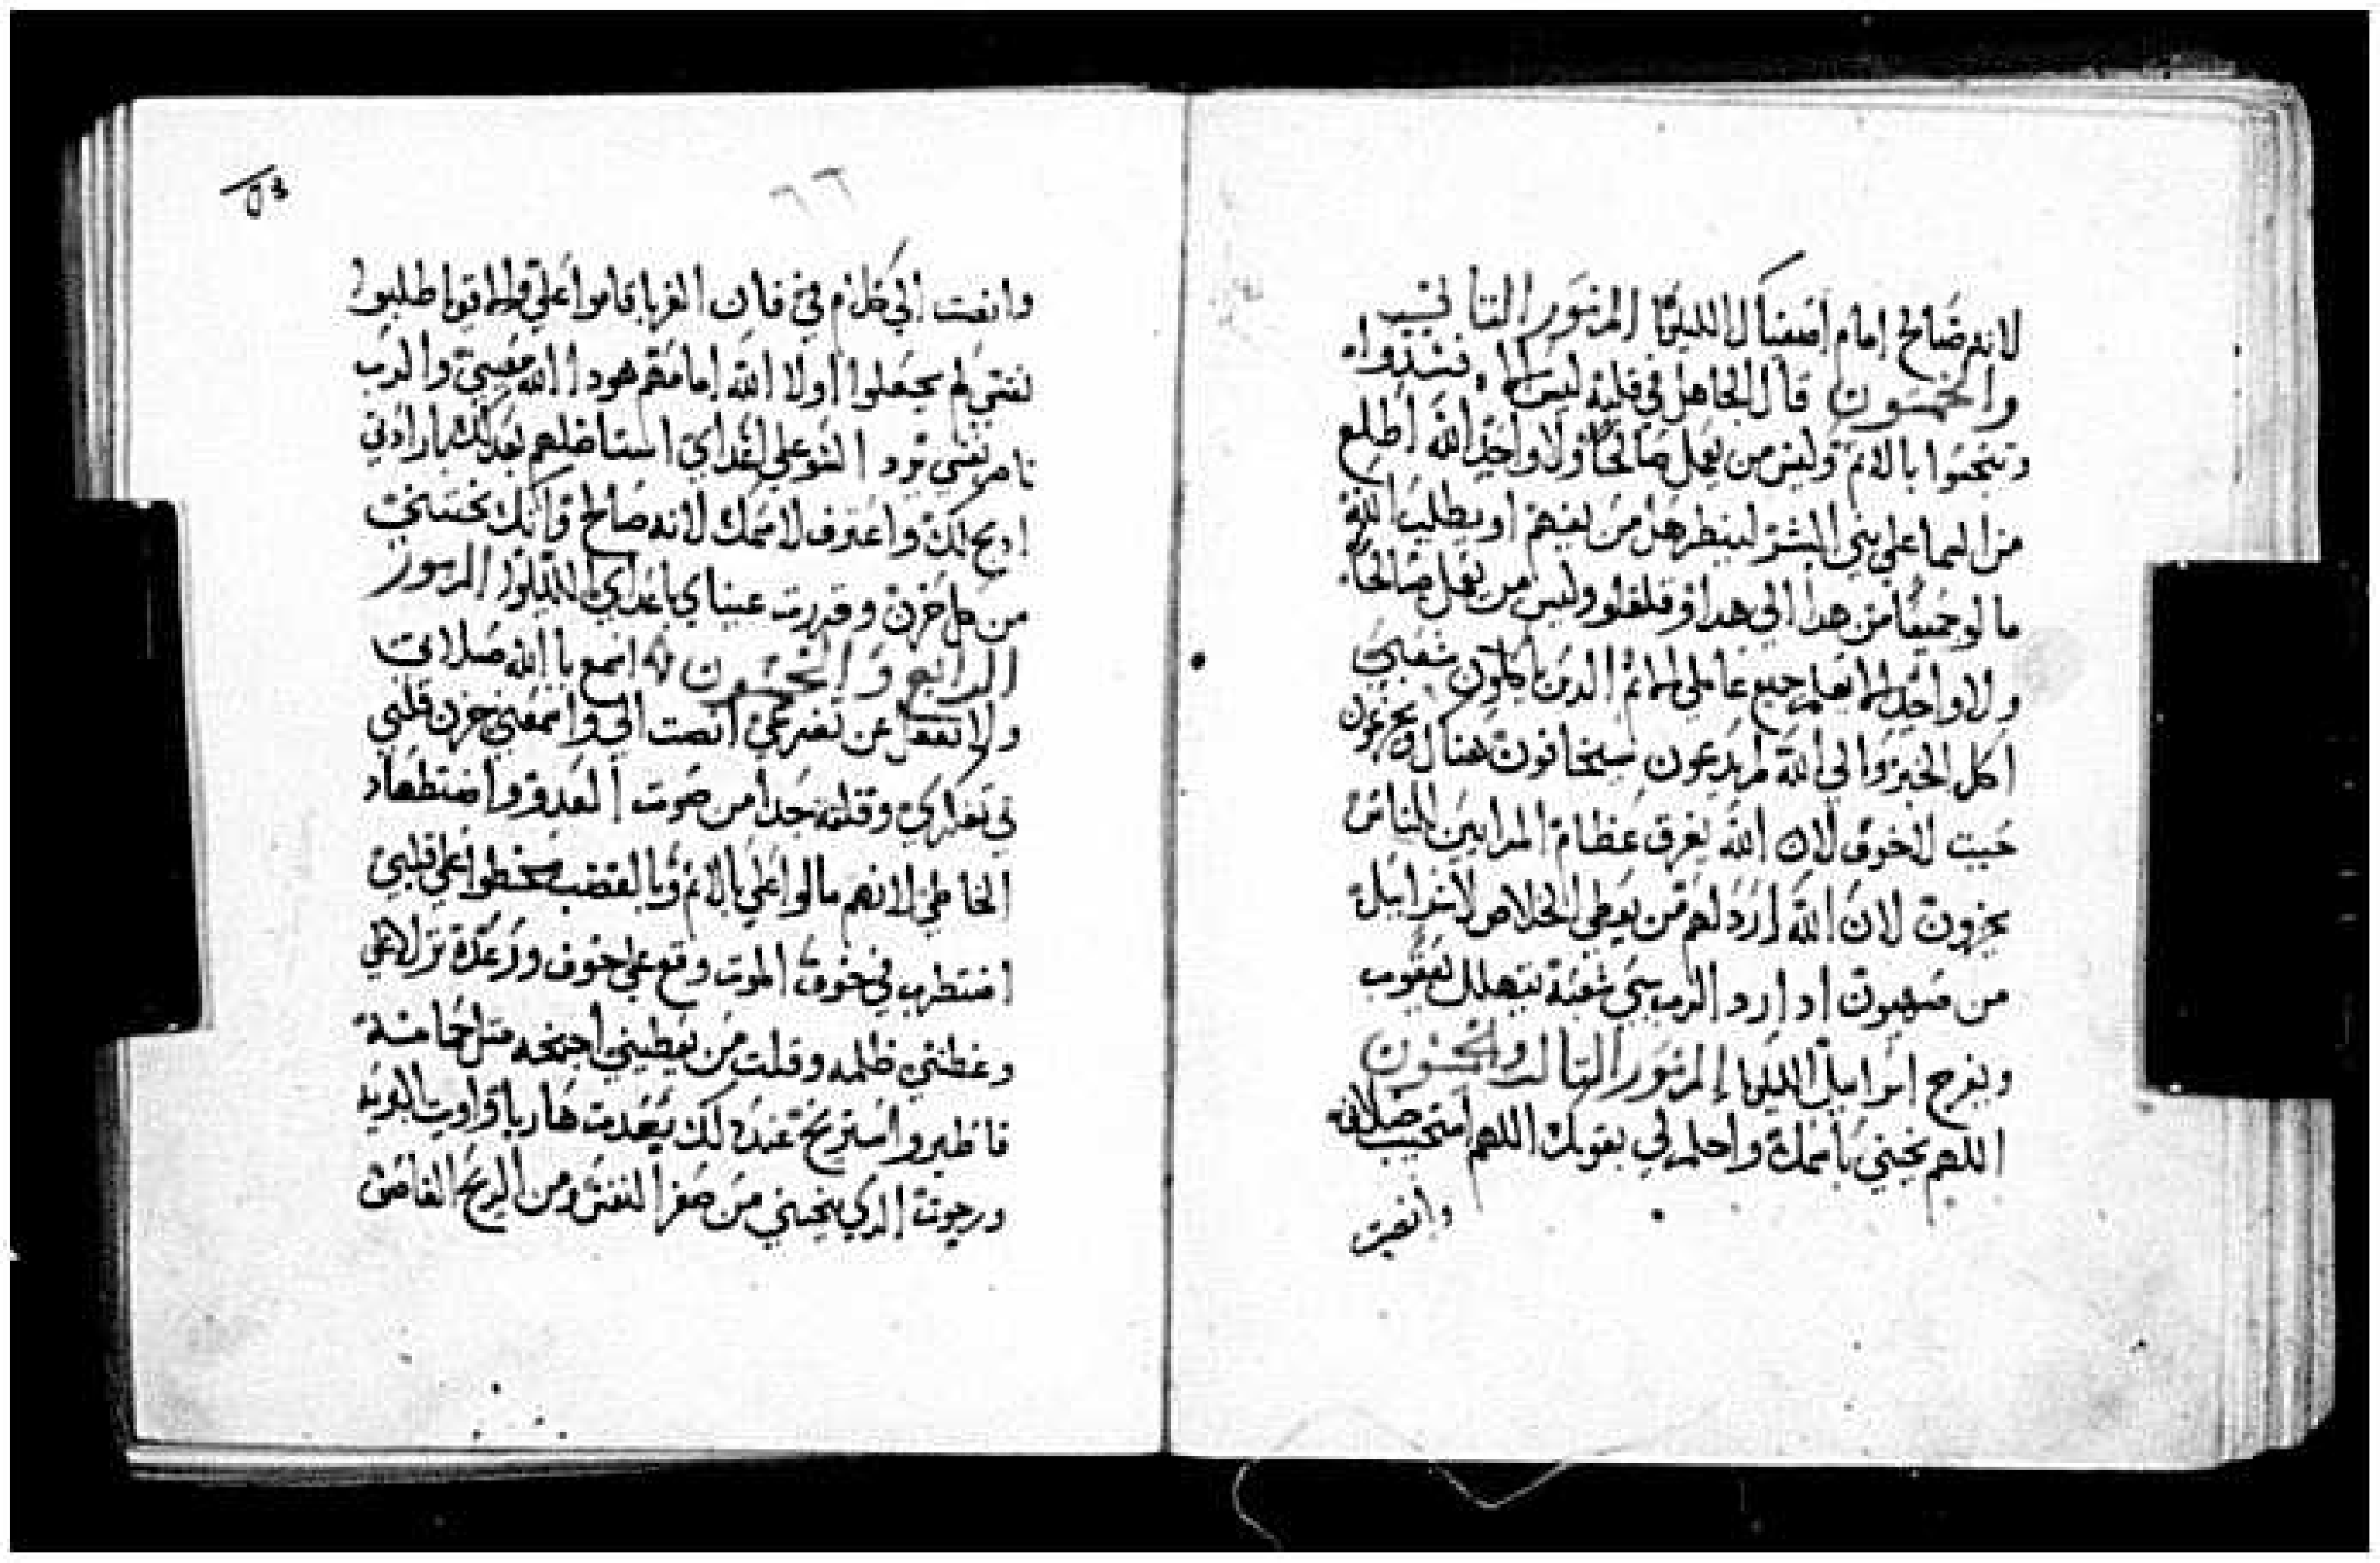 لانه صالح امام اصفياك الليلويا المزمور التاني
والخمسون قال الجاهل في قلبه ليس اله فسدوا
وتنجسوا بالاتم وليس من يعمل صالحا ولا واحد الله اطلع
من السما على بني البشر لينظر هل من يفهم او يطلب الله
مالوا جميعا من هدا الى هدا وقلقلوا وليس من يعمل صالحا
ولا واحد اما يعلم جميع عاملي الاتم الدين ياكلون شعبي
اكل الخبز والى الله لم يدعون سيخافون هناك ويجزعون
حيت لا خوف لان الله يفرق عظام المرايين للناس
يخزون لان الله اردلهم من يعطي الخلاص لاسراييل
من صهيون ادا رد الرب سبي شعبه يتهلل يعقوب
ويفرح اسراييل الليلويا المزمور التالت والخمسون
اللهم نجيني باسمك واحكم لي بقوتك اللهم استجيب صلاتي
وانصت
٦٦
وانصت الى كلام في فان الغربا قاموا علي والاقويا طلبوا
نفسي لم يجعلوا اولا الله امامهم هودا الله معيني والرب
ناصر نفسي ترد السو على اعداي استاصلهم بعدلك بارادتي
ادبح لك واعترف لاسمك لانه صالح وانك نجيتني
من كل حزن وقررت عيناي باعداي الليلويا المزمور
الرابع والخمسون اسمع يا الله صلاتي
ولا تغفل عن تضرعي انصت الي واسمعني حزن قلبي
في تفكري وقلقت جدا من صوت العدو واضطهاد
الخاطي لانهم مالوا علي بالاتم وبالغضب سخطوا علي قلبي
اضطرب في خوف الموت وقع علي خوف ورعدة نزلا علي
وغطتني ظلمه وقلت من يعطيني اجنحه متل حمامة
فاطير واستريح عند دلك بعدت هاربا واويت البريه
ورجوت الدي ينجيني من صغر النفس ومن الريح العاصف